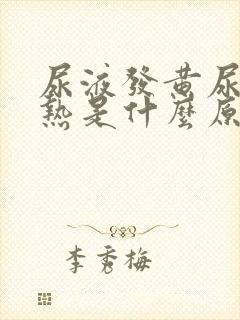 尿液發黃尿
熱是什麼原
李秀梅